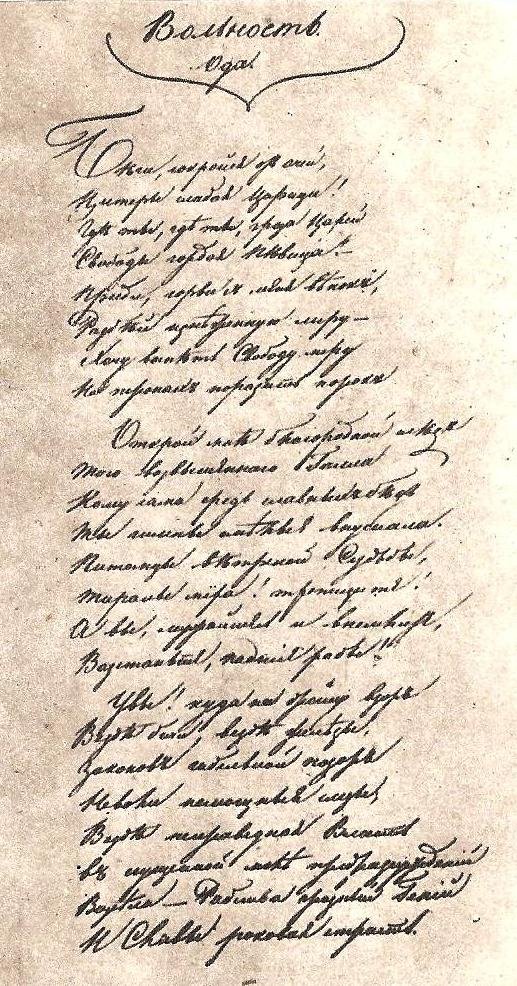 Вольность.
Ода.
Бѣги, сокройся отъ очей,
Цитеры слабая Царица!
Гдѣ ты, гдѣ ты, гроза Царей
Свободы гордая пѣвица? —
Приди, сорви съ меня вѣнокъ,
Разбей изнѣженную лиру —
Хочу воспѣть Свободу міру
На тронахъ поразить порокъ
Открой мнѣ благородной слѣдъ
Того возвышеннаго Галла
Кому сама средь славныхъ бѣдъ
Ты гимны смѣлыя внушала.
Питомцы вѣтреной Судьбы,
Тираны міра! трепещите!
А вы, мужайтесь и внемлите,
Возстаньте, падшіе рабы!
Увы! куда ни брошу взоръ
Вездѣ бичи вездѣ желѣзы,
Законовъ гибельной позоръ
Неволи немощныя слезы;
Вездѣ неправедная Власть
Въ сгущенной мглѣ предразсужденій
Возсѣла — Рабства грозный Геній
И Славы роковая страсть.